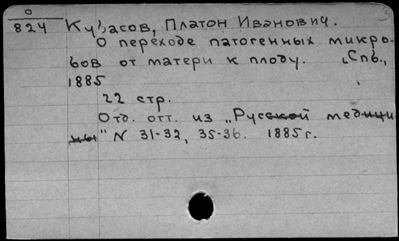 О
824 Кубасов, Платон Иванович.
О переходе патогенных микро-
бов от матери к плоду. Спб.,
1885
22 стр.
Отд. отт. из „Русской медици
ны" N 31-32, 35-36. 1885 г.